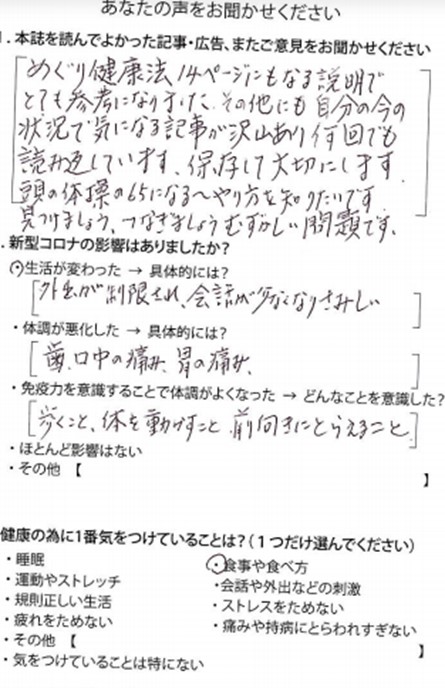 あなたの声をお聞かせください
1. 本誌を読んでよかった記事・広告、またご意見をお聞かせください
めぐり健康法14ページにもなる説明で
とても参考になりました、その他にも自分の今の
状況で気になる記事が沢山あり何回でも
読み返しています、保存して大切にします
頭の体操の65になる〜やり方を知りたいです
見つけましょう、つなぎましょうむずかしい問題です、
. 新型コロナの影響はありましたか?
・生活が変わった → 具体的には?
外出が制限され、会話が少なくなりさみしい
・体調が悪化した → 具体的には?
歯、口中の痛み、胃の痛み、
・免疫力を意識することで体調がよくなった → どんなことを意識した?
歩くこと、体を動かすこと 前向きにとらえること
・ほとんど影響はない
・その他 【 】
健康の為に1番気をつけていることは?(1つだけ選んでください)
・睡眠 ・食事や食べ方
・運動やストレッチ ・会話や外出などの刺激
・規則正しい生活 ・ストレスをためない
・疲れをためない ・痛みや持病にとらわれすぎない
・その他 【 】
・気をつけていることは特にない